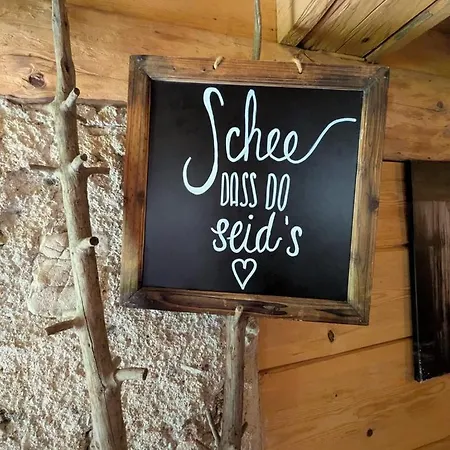 Schee
DASS DO
seid's